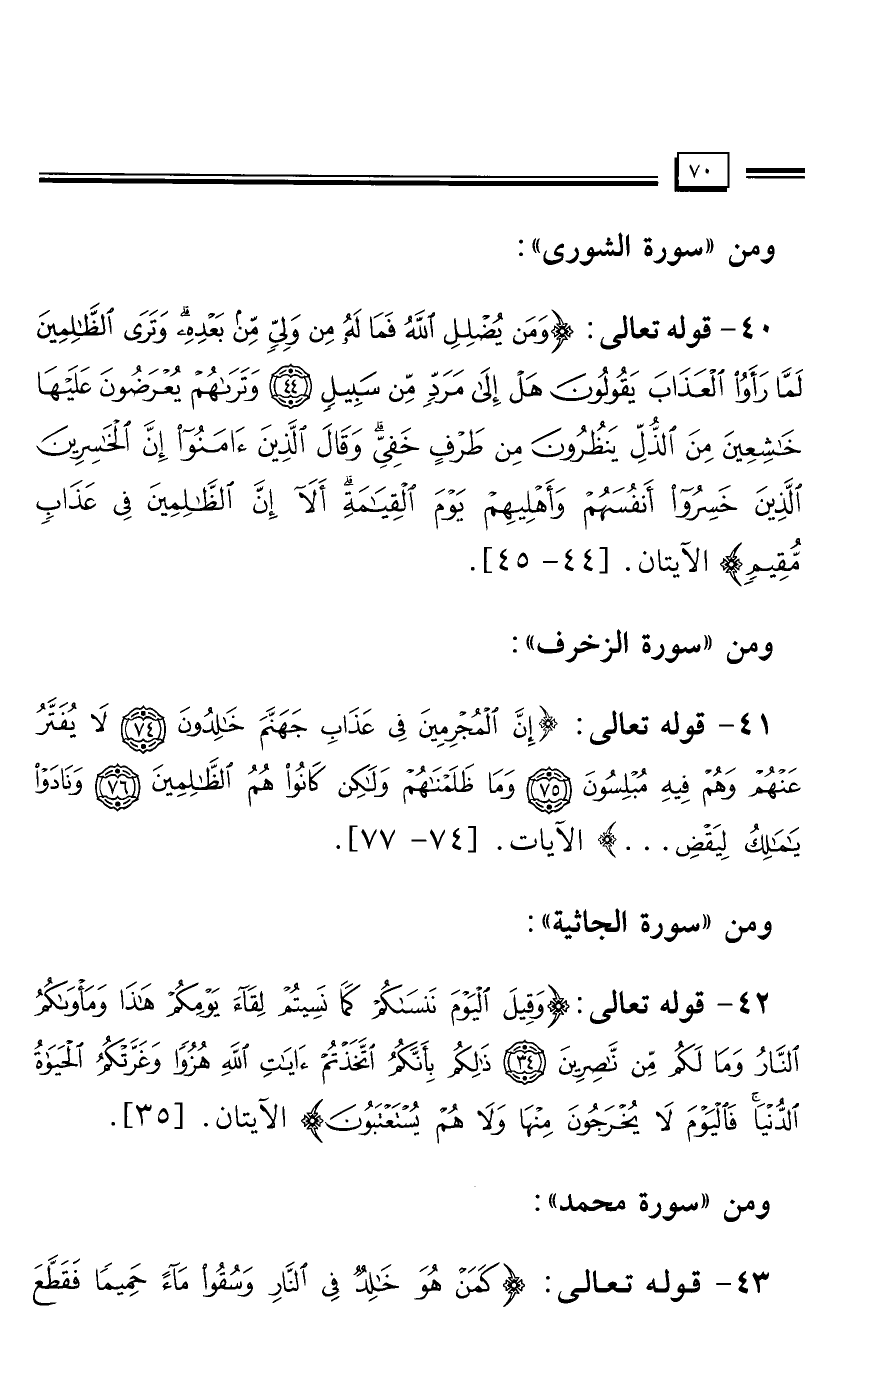 ٧٠
ومن «سورة الشورى»:
٤٠- قوله تعالى: ﴿وَمَن يُضْلِلِ ٱللَّهُ فَمَا لَهُۥ مِن وَلِيٍّ مِّنۢ بَعْدِهِۦۗ وَتَرَى ٱلظَّٰلِمِينَ
لَمَّا رَأَوُاْ ٱلْعَذَابَ يَقُولُونَ هَلْ إِلَىٰ مَرَدٍّ مِّن سَبِيلٍ ٤٤ وَتَرَىٰهُمْ يُعْرَضُونَ عَلَيْهَا
خَٰشِعِينَ مِنَ ٱلذُّلِّ يَنظُرُونَ مِن طَرْفٍ خَفِيٍّۗ وَقَالَ ٱلَّذِينَ ءَامَنُوٓاْ إِنَّ ٱلْخَٰسِرِينَ
ٱلَّذِينَ خَسِرُوٓاْ أَنفُسَهُمْ وَأَهْلِيهِمْ يَوْمَ ٱلْقِيَٰمَةِۗ أَلَآ إِنَّ ٱلظَّٰلِمِينَ فِى عَذَابٍ
مُّقِيمٍ﴾ الآيتان. [٤٤- ٤٥].
ومن «سورة الزخرف»:
٤١- قوله تعالى: ﴿إِنَّ ٱلْمُجْرِمِينَ فِى عَذَابِ جَهَنَّمَ خَٰلِدُونَ ٧٤ لَا يُفَتَّرُ
عَنْهُمْ وَهُمْ فِيهِ مُبْلِسُونَ ٧٥ وَمَا ظَلَمْنَٰهُمْ وَلَٰكِن كَانُواْ هُمُ ٱلظَّٰلِمِينَ ٧٦ وَنَادَوْاْ
يَٰمَٰلِكُ لِيَقْضِ...﴾ الآيات. [٧٤- ٧٧].
ومن «سورة الجاثية»:
٤٢- قوله تعالى: ﴿وَقِيلَ ٱلْيَوْمَ نَنسَىٰكُمْ كَمَا نَسِيتُمْ لِقَآءَ يَوْمِكُمْ هَٰذَا وَمَأْوَىٰكُمُ
ٱلنَّارُ وَمَا لَكُم مِّن نَّٰصِرِينَ ٣٤ ذَٰلِكُم بِأَنَّكُمُ ٱتَّخَذْتُمْ ءَايَٰتِ ٱللَّهِ هُزُوًا وَغَرَّتْكُمُ ٱلْحَيَوٰةُ
ٱلدُّنْيَاۚ فَٱلْيَوْمَ لَا يُخْرَجُونَ مِنْهَا وَلَا هُمْ يُسْتَعْتَبُونَ﴾ الآيتان. [٣٥].
ومن «سورة محمد»:
٤٣- قوله تعالى: ﴿كَمَنْ هُوَ خَٰلِدٌ فِى ٱلنَّارِ وَسُقُواْ مَآءً حَمِيمًا فَقَطَّعَ